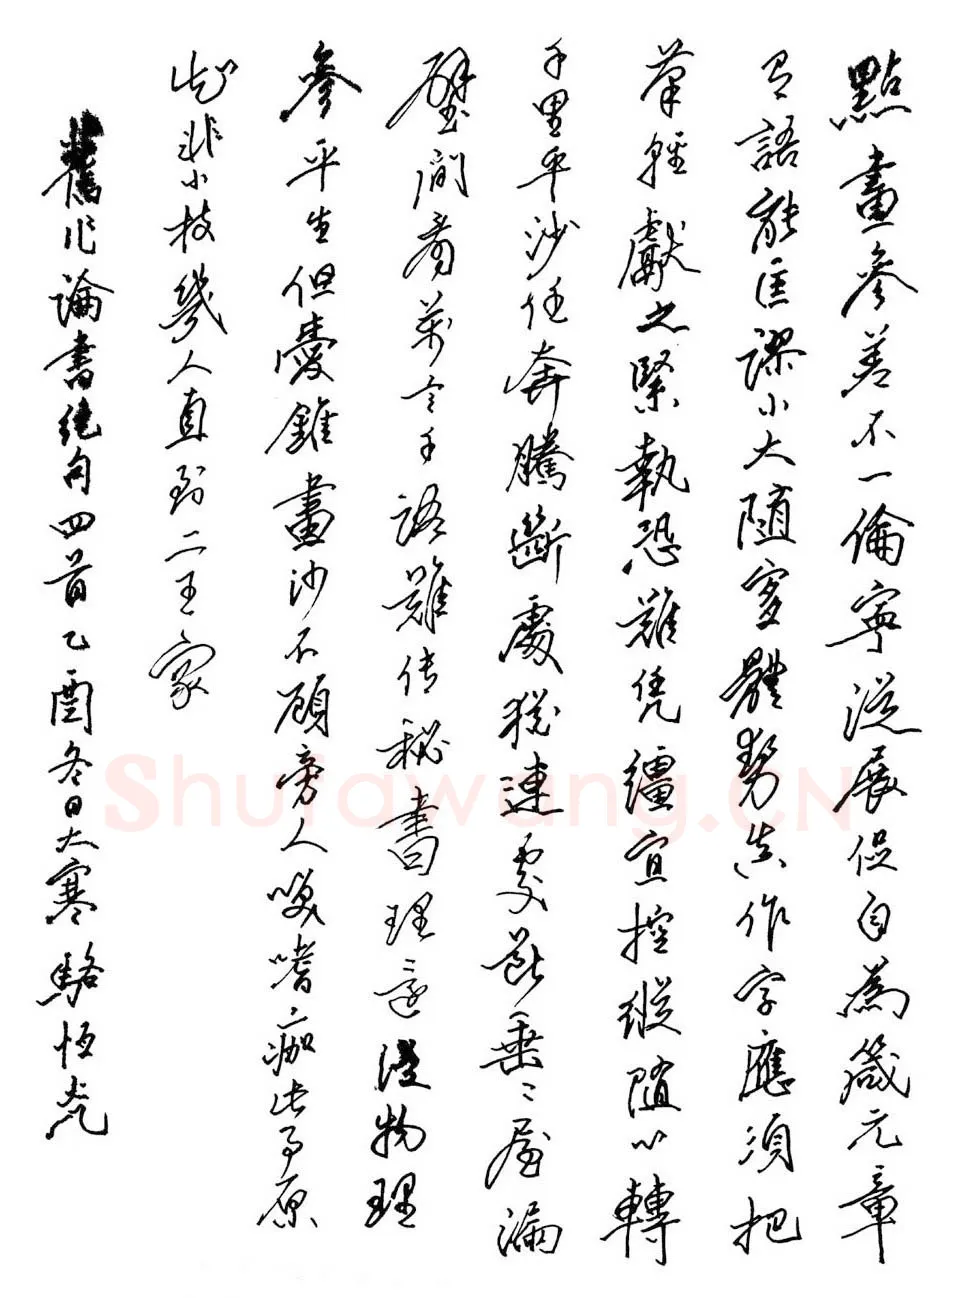 點畫參差不一倫寧從展促自為箴元章
有語能匡謬小大随體勢真作字應須把
筆輕獻之緊執恐難凭繮宜控縱隨心轉
千里平沙任奔騰斷處猶連處斷垂垂屋漏
壁間看萬手語難传秘書理還從物理
參平生但愛錐畫沙不顧旁人咲嗜痂此事原
知非小技幾人直到二王家
舊作論書绝句四首乙酉冬日大寒駱恒光
Shufawang.CN